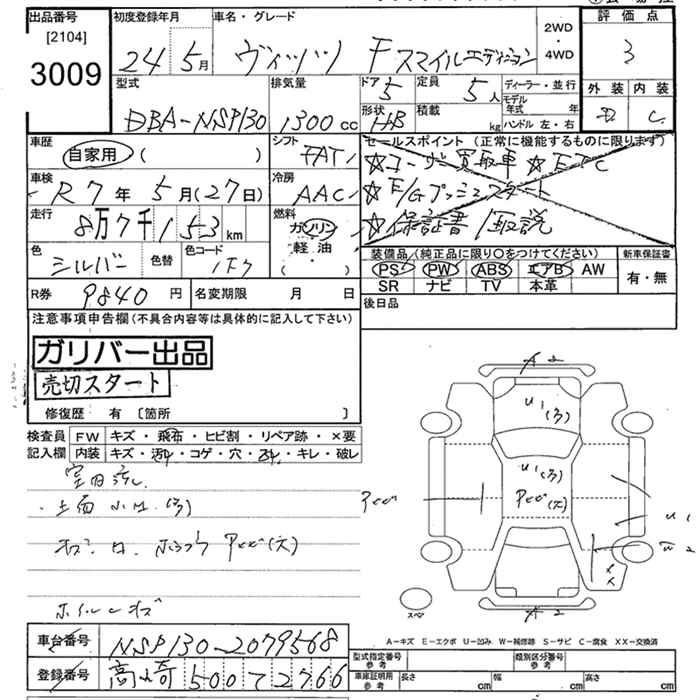 出品番号
[2104]
3009
初度登録年月
24 5月
車名・グレード
ヴィッツ Fスマイルエディション
2WD・4WD
評価点
3
外装 内装
D C
型式
DBA-NSP130
排気量
1300cc
ドア 5
定員 5人
形状 HB
積載 kg
ディーラー・並行
モデル年式 年
ハンドル 左・右
車歴
自家用 ( )
シフト
FAT
セールスポイント (正常に機能するものに限ります)
☆ユーザー買取車 ☆ETC
☆E/Gプッシュスタート
☆保証書/取説
車検
R7年5月(27日)
冷房
AAC
走行
8万7千153km
燃料
ガソリン・軽油・( )
色
シルバー
色替
色コード
1F7
装備品(純正品に限り○をつけてください)
PS PW ABS エアB AW
SR ナビ TV 本革
新車保証書
有・無
R券 9840円
名変期限 月 日
後日品
注意事項申告欄(不具合内容等は具体的に記入して下さい)
ガリバー出品
売切スタート
修復歴 有 〔箇所 〕
検査員記入欄
FW キズ・飛石・ヒビ割・リペア跡・×要
内装 キズ・汚れ・コゲ・穴・ スレ・キレ・破レ
A2
U1
U1
A2
スペア
A−キズ E−エクボ U−凹み W−補修跡 S−サビ C−腐食 XX−交換済
車台番号 NSP130-2079568
登録番号 高崎500て2766
型式指定番号 参考
類別区分番号 参考
車庫証明用 参考 長さ cm 幅 cm 高さ cm